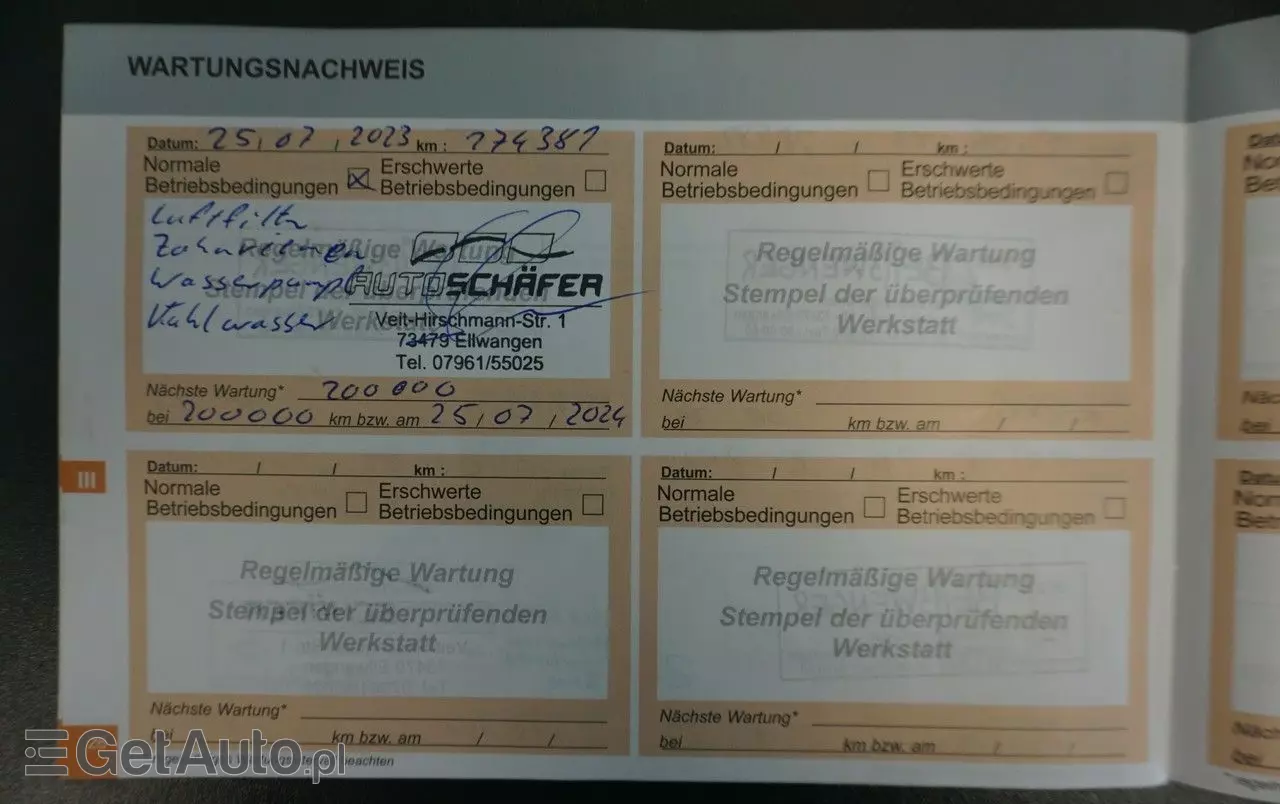 WARTUNGSNACHWEIS
Datum: 25, 07, 2023 km : 174381
Normale Betriebsbedingungen ☒ Erschwerte Betriebsbedingungen ☐
Luftfilter
Zahnriemen
Wasserpumpe
Kühlwasser
Regelmäßige Wartung
Stempel der überprüfenden
Werkstatt
AUTOSCHÄFER
Veit-Hirschmann-Str. 1
73479 Ellwangen
Tel. 07961/55025
Nächste Wartung* 200 000
bei 200000 km bzw. am 25, 07, 2024
Datum: / / km :
Normale Betriebsbedingungen ☐ Erschwerte Betriebsbedingungen ☐
Regelmäßige Wartung
Stempel der überprüfenden
Werkstatt
Nächste Wartung*
bei km bzw. am / /
III
Datum: / / km :
Normale Betriebsbedingungen ☐ Erschwerte Betriebsbedingungen ☐
Regelmäßige Wartung
Stempel der überprüfenden
Werkstatt
Nächste Wartung*
bei km bzw. am / /
Datum: / / km :
Normale Betriebsbedingungen ☐ Erschwerte Betriebsbedingungen ☐
Regelmäßige Wartung
Stempel der überprüfenden
Werkstatt
Nächste Wartung*
bei km bzw. am / /
beachten
GetAuto.pl